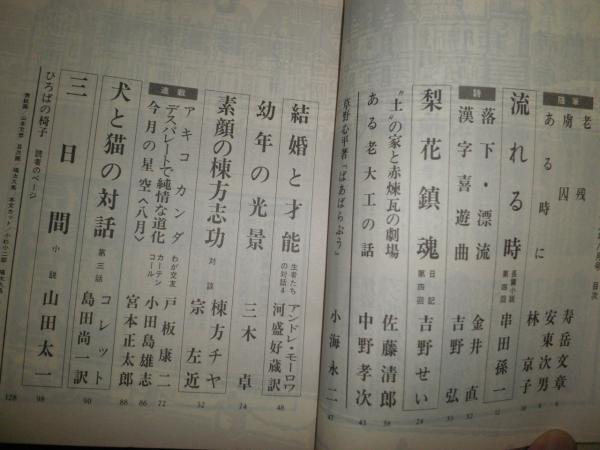 八月号 目次
随筆
老残 寿岳文章
虜囚 安東次男
ある時に 林京子
流れる時 長篇小説 第四回 串田孫一 12
詩
落下・漂流 金井直 32
漢字喜遊曲 吉野弘 33
梨花鎮魂 日記 第四回 吉野せい 24
"土"の家と赤煉瓦の劇場 佐藤清郎 38
ある老大工の話 中野孝次 43
草野心平著『ばあばらぶう』 小海永二 47
結婚と才能 生者たちの対話4 アンドレ・モーロワ 河盛好蔵訳 48
幼年の光景 三木卓 74
素顔の棟方志功 対談 棟方チヤ 宗左近 52
連載
アキコ カンダ わが交友 戸板康二 72
デスパレートで純情な道化 カーテンコール 小田島雄志 86
今月の星空〈八月〉 宮本正太郎 88
犬と猫の対話 第三話 コレット 島田尚一訳 90
三日間 小説 山田太一 98
ひろばの椅子 読者のページ 128